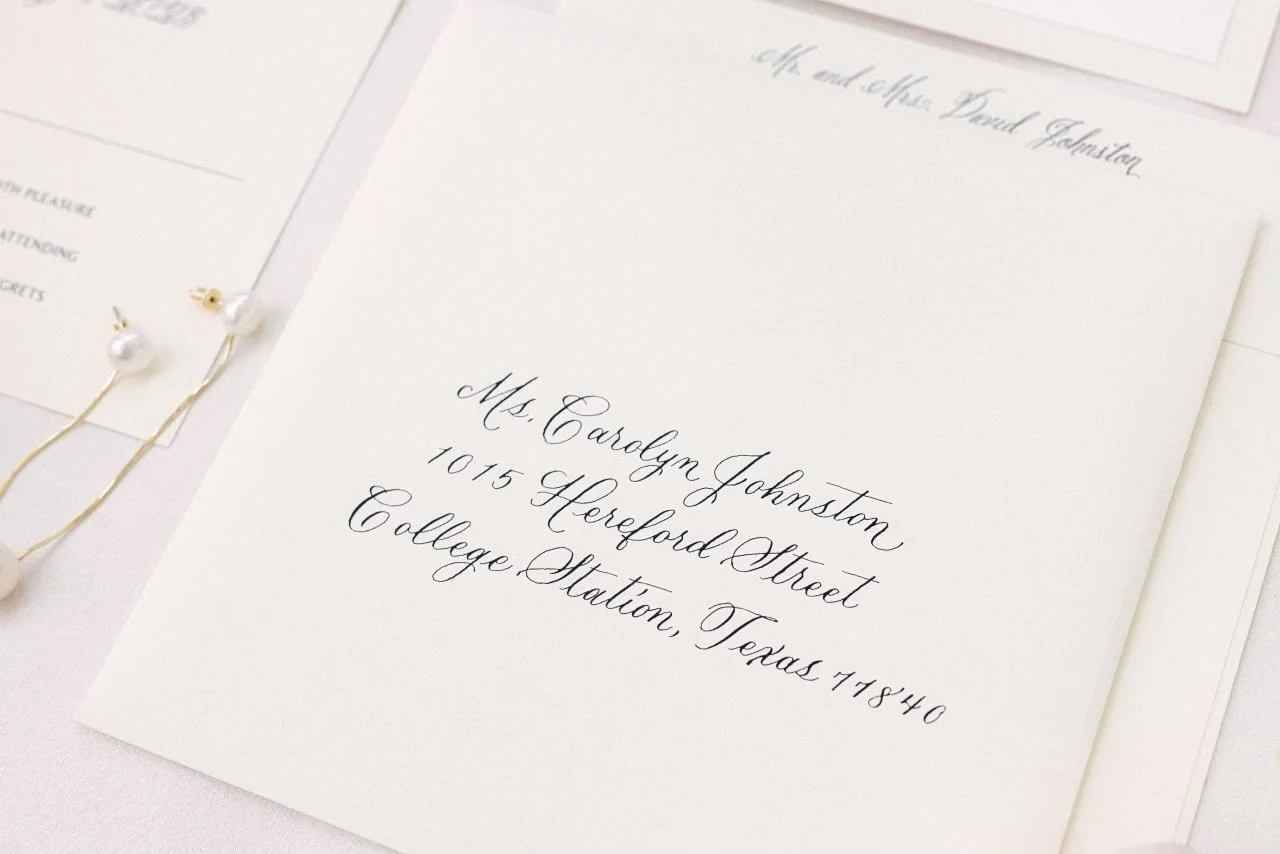 TH PLEASURE
ATTENDING
GRETS
Mr. and Mrs. David Johnston
Ms. Carolyn Johnston
1015 Hereford Street
College Station, Texas 77840